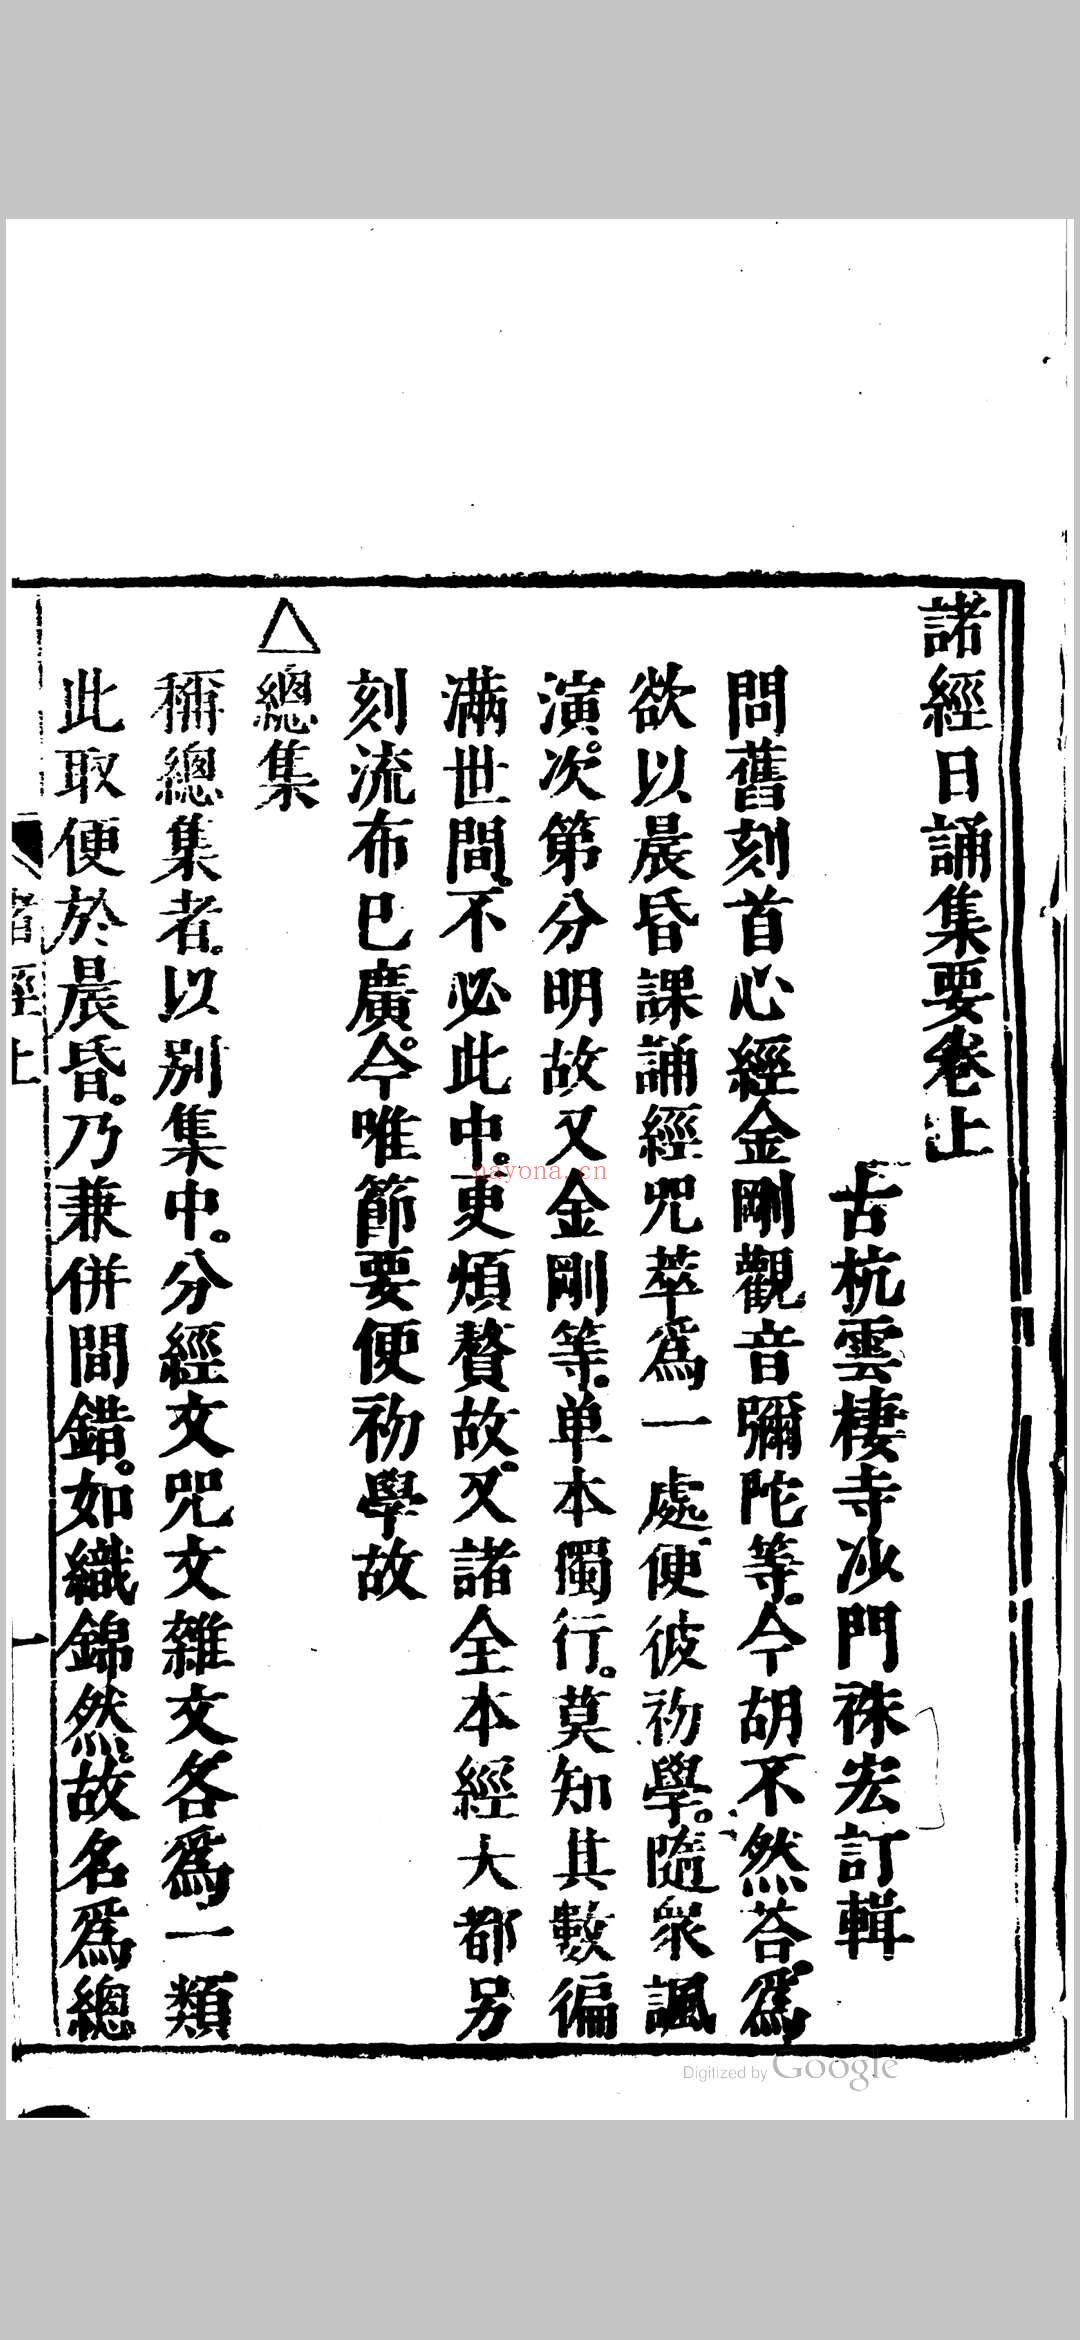 諸經日誦集要卷上
古杭雲棲寺沙門祩宏訂輯
問舊刻首心經金剛觀音彌陀等。今胡不然荅。爲
欲以晨昏課誦經咒萃爲一處。便彼初學。隨衆諷
演。次第分明故又金剛等。单本獨行。莫知其數徧
滿世間。不必此中。更煩贅故。又諸全本經大都另
刻流布已廣。今唯節要便初學故
△總集
稱總集者。以別集中。分經文咒文雜文各爲一類
此取便於晨昏。乃兼併間錯。如織錦然。故名爲總
諸經上
一
nayona.cn
Digitized by Google